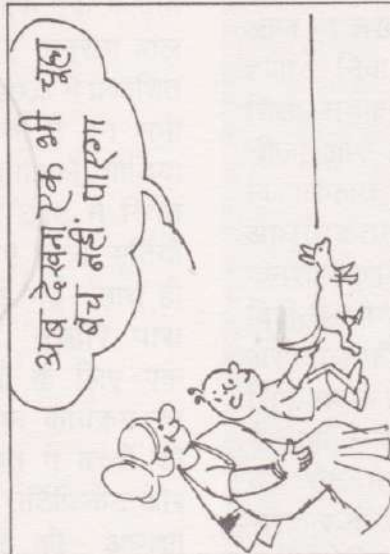 अब देखना एक भी चूहा
बच नहीं पाएगा